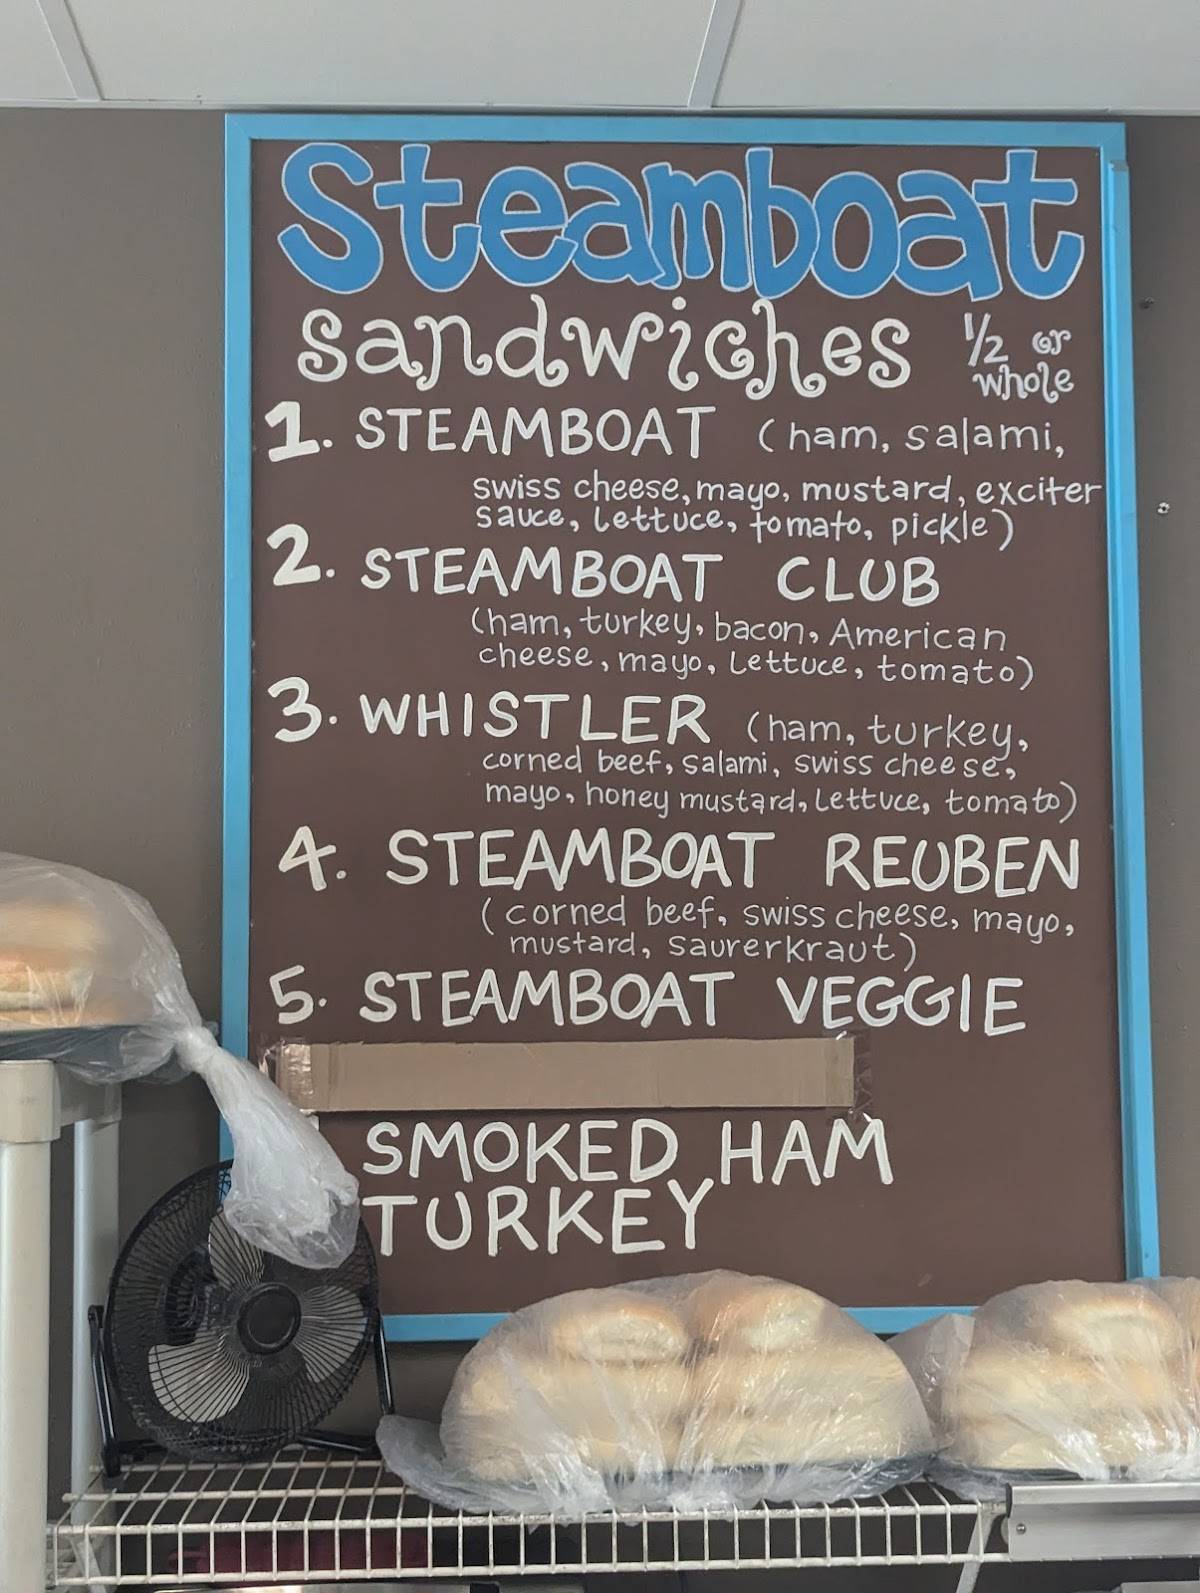 Steamboat
sandwiches 1/2 or
whole
1. STEAMBOAT (ham, salami,
swiss cheese, mayo, mustard, exciter
sauce, lettuce, tomato, pickle)
2. STEAMBOAT CLUB
(ham, turkey, bacon, American
cheese, mayo, lettuce, tomato)
3. WHISTLER (ham, turkey,
corned beef, salami, swiss cheese,
mayo, honey mustard, lettuce, tomato)
4. STEAMBOAT REUBEN
(corned beef, swiss cheese, mayo,
mustard, saurerkraut)
5. STEAMBOAT VEGGIE
SMOKED HAM
TURKEY